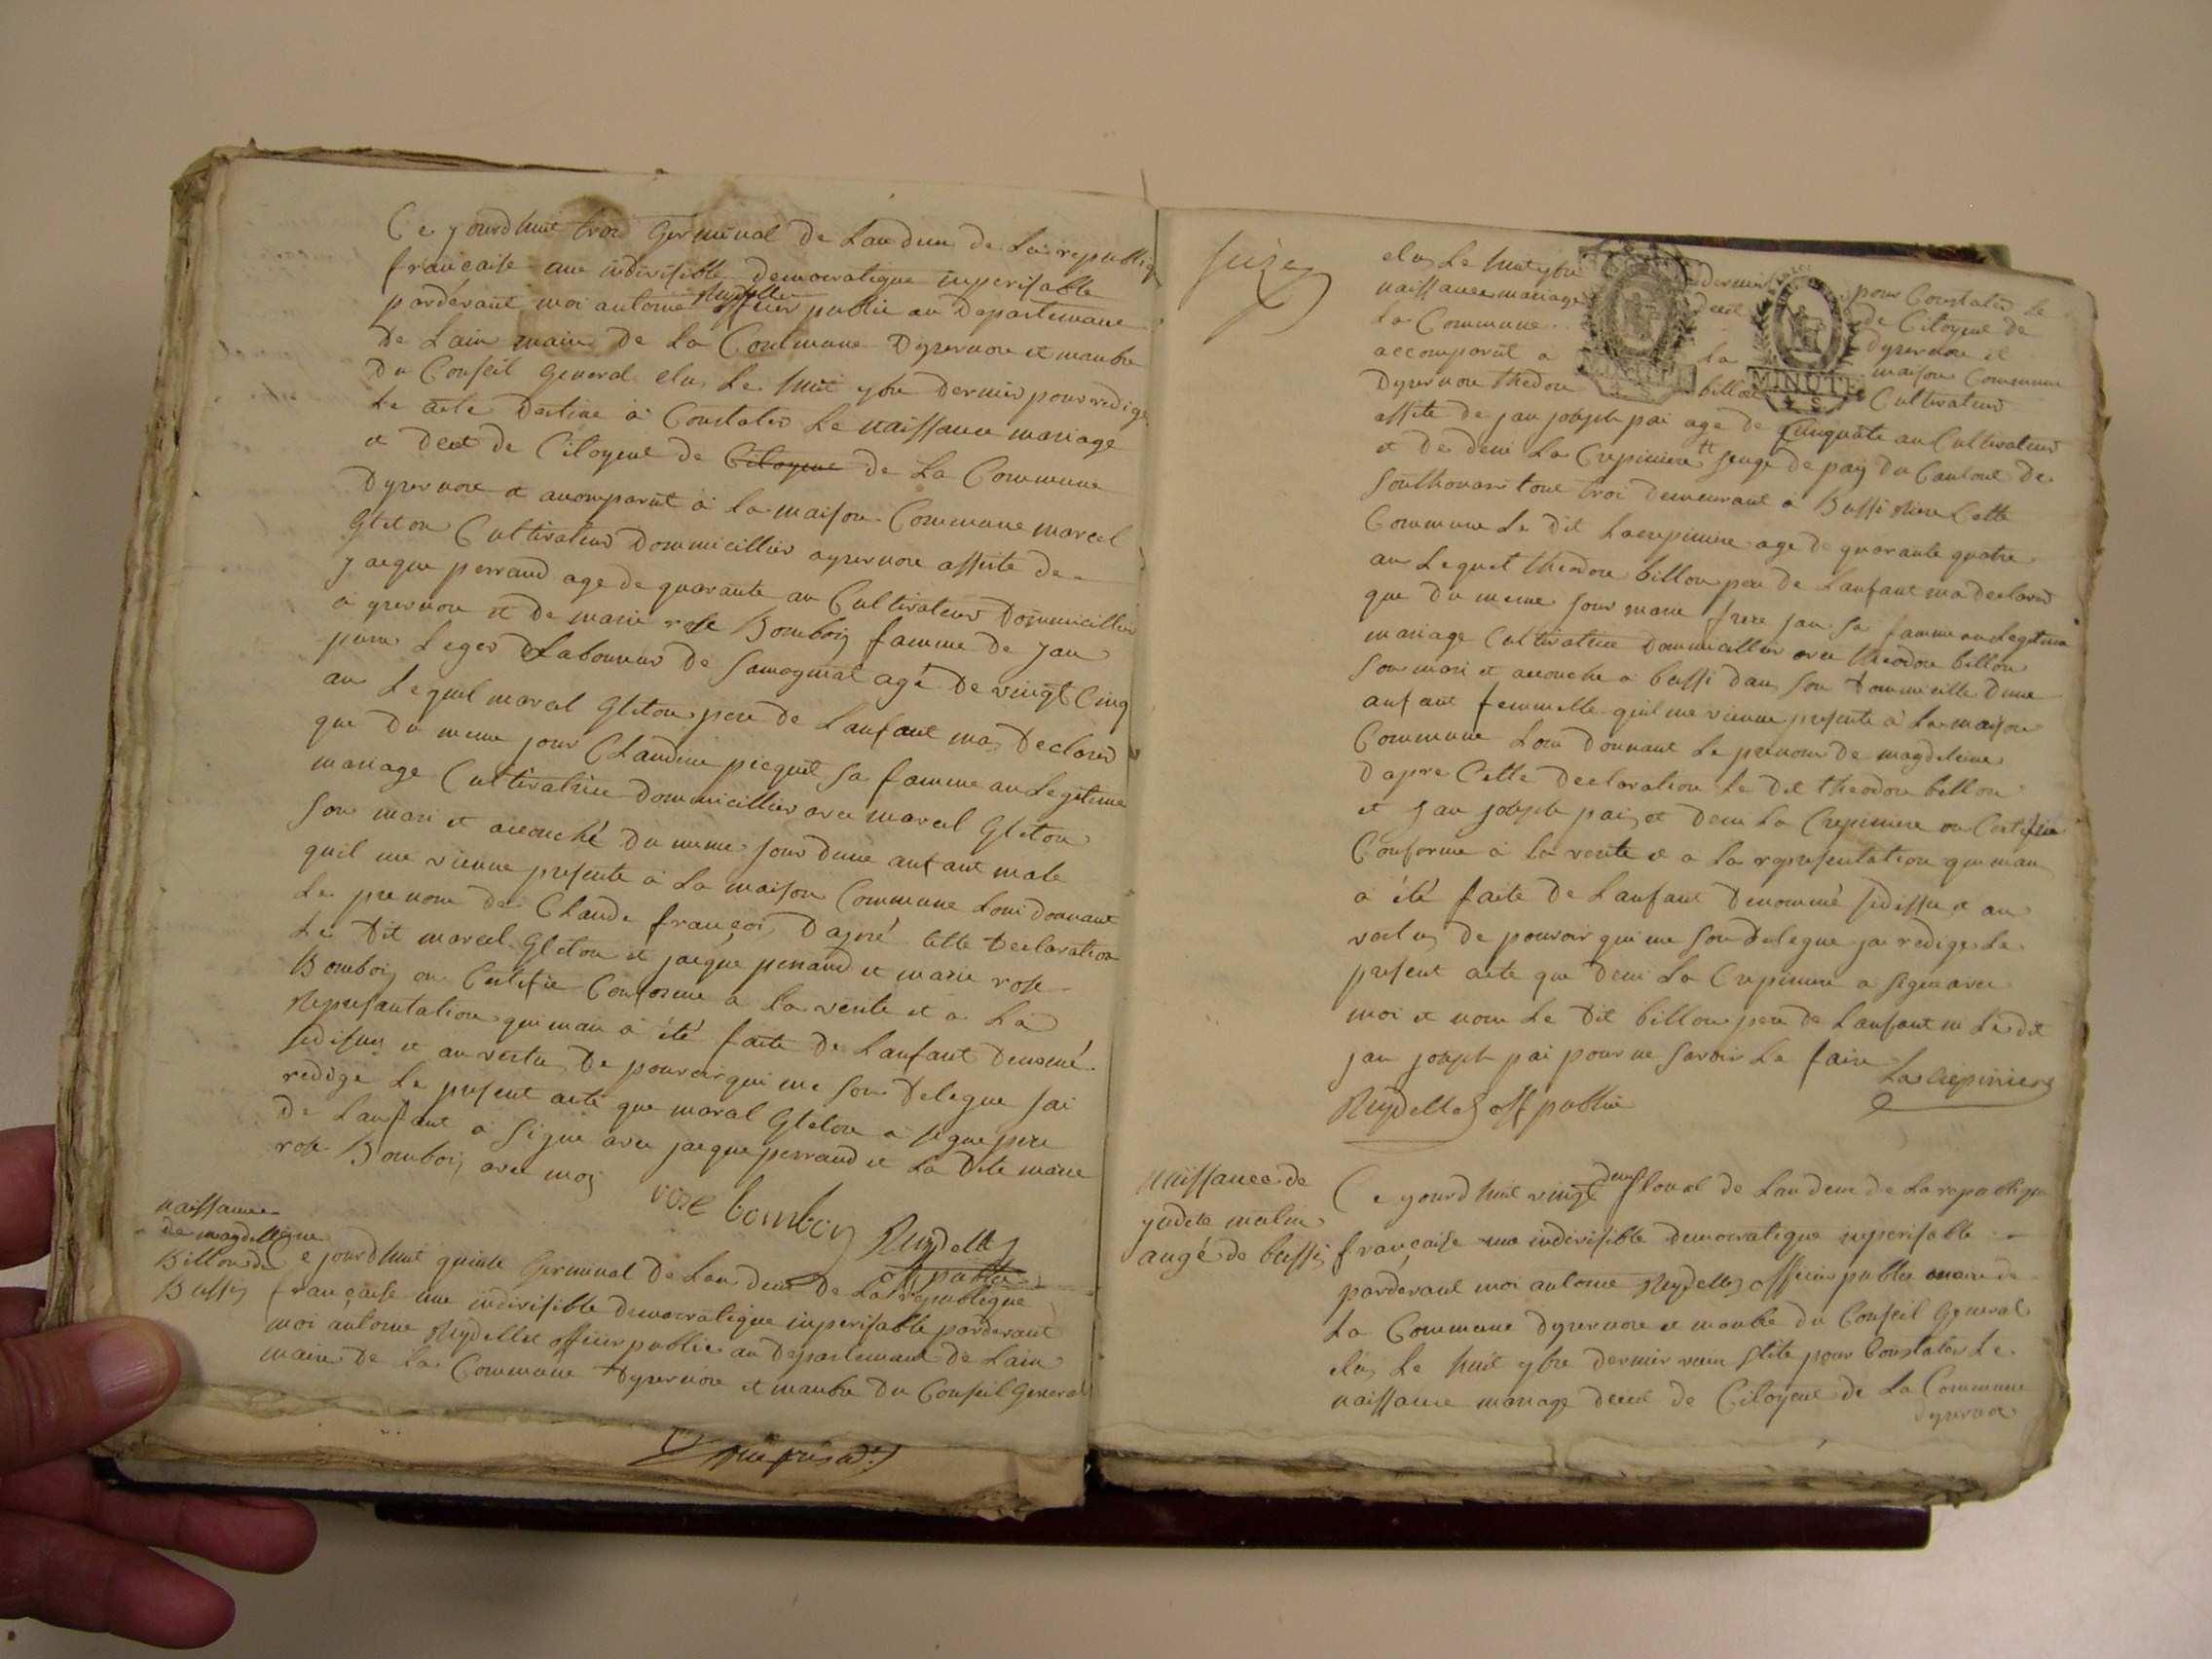 Ce yourdhuit troi Germinal de Lan deus de La republiq
francaise une indivisible democratique inperisable
pardevant moi antoine Reydellet officier publie au Departemane
de Lain maire de La Commune Dyzernore et manbre
du Conseil General elus Le huit 9bre dernier pour redige
Le acte destine à Constater Le naissance mariage
et deceᵈ de Citoyent de Citoyent de La Commune
Dyzernore et acomparut à La maison Commune marcel
Gleton Cultivateur Dommicillier ayzernore assiste de
jacque perraud age de quarante an Cultivateur Dommicillier
a yzernore et de marie rose Bomboy famme de jan
Leger Laboureur de Samognat agé de vingt Cinq
an Lequel marcel Gleton pere de Lanfant ma Declaree
que du meme jour Claudine picquet sa famme an Legetime
mariage Cultivatrice dommicillier avec marcel Gleton
son mari et acouché du meme jour dune anfant male
quil me vienne presente à La maison Commune Loui donnant
Le prenom de Claude françoi Dapré Cette Declaration
Le dit marcel Gleton et jacque perraud et marie rose
Bomboy on Certifie Conforme a La verite et a La
Represantation qui man à été faite de Lanfant denomé
sedisus et an vertu de pouvoir qui me son delegue jai
redige Le present acte que marcal Gleton a signe pere
de Lanfant a signe avec jacque perraud et La dite marie
rose Bomboy avec moy
rose bomboy Reydellet
off publie
naissance
de magdelleine
Billon de
Bussy
Ce jourdhuit quinte Germinal de Lan deus de La republeque
francaise une indivisible democratique inperisable pardevant
moi antoine Reydellet officier publie au Departemant de Lain
maire de La Commune Dyzernore et manbre du Conseil General
elus Le huit 9bre dernier pour Constater Le
naissance mariage deceᵈ de Citoyent de
La Commune Dyzernore et
accomparut a La maison Commune
MINUTE
Dyzernore thedore billon Cultivateur
assite de jan joseph pai age de Cinquate an Cultivateur
et de deni La Crepiniere de pay du Cantont de
Southonari tout troi demeurant a Bussi Cette
Commune Le dit Lacrepiniere age de quarante quatre
an Lequel theodore billon pere de Lanfant ma declaree
que du meme jour marie jan sa famme an Legetime
mariage Cultivatrice dommicillier avec theodore billon
son mari et acouche a bussi dans son dommicille dune
anfant femmelle quil me vienne presente à La maison
Commune Loui donnant Le prenom de magdeleine
dapre Cette declaration Le dit theodore billon
et jan joseph pai et deni La Crepiniere on Certifie
Conforme à La verite et a La representation qui man
a été faite de Lanfant denommé sedessu et an
vertu de pouvoir qui me son delegue jai redige Le
present acte que deni La Crepiniere a signe avec
moi et nom Le dit billon pere de Lanfant ni Le dit
jan joseph pai pour ne savoir Le faire
Lacrepiniere
Reydellet off publie
naissance de
judete
de bussi
Ce yourdhuit vingt deus floral de Lan deus de La republique
française une indivisible democratique inperisable
pardevant moi antoine Reydellet officier publie maire de
La Commune dyzernore et manbre du Conseil General
elus Le huit 9bre dernier pour Constater Le
naissance mariage deceᵈ de Citoyent de La Commune
dyzernore